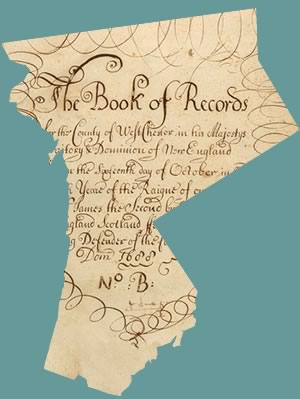 The Book of Records
for the County of WestChester in his Majestys
Dominion of New England
the Sixteenth day of October in
Year of the Raigne of
James the Second
England Scotland
Defender of the
Dom 1688
No: B: